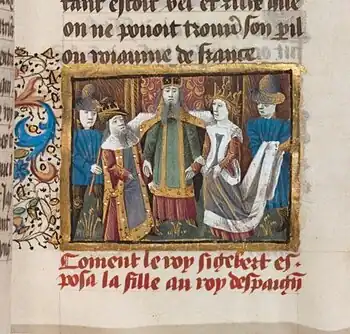 tant estoit bel et riche que
on ne pouoit trouuer son pil
ou royaume de france
Coment le roy sigebert es-
posa la fille au roy despaigne